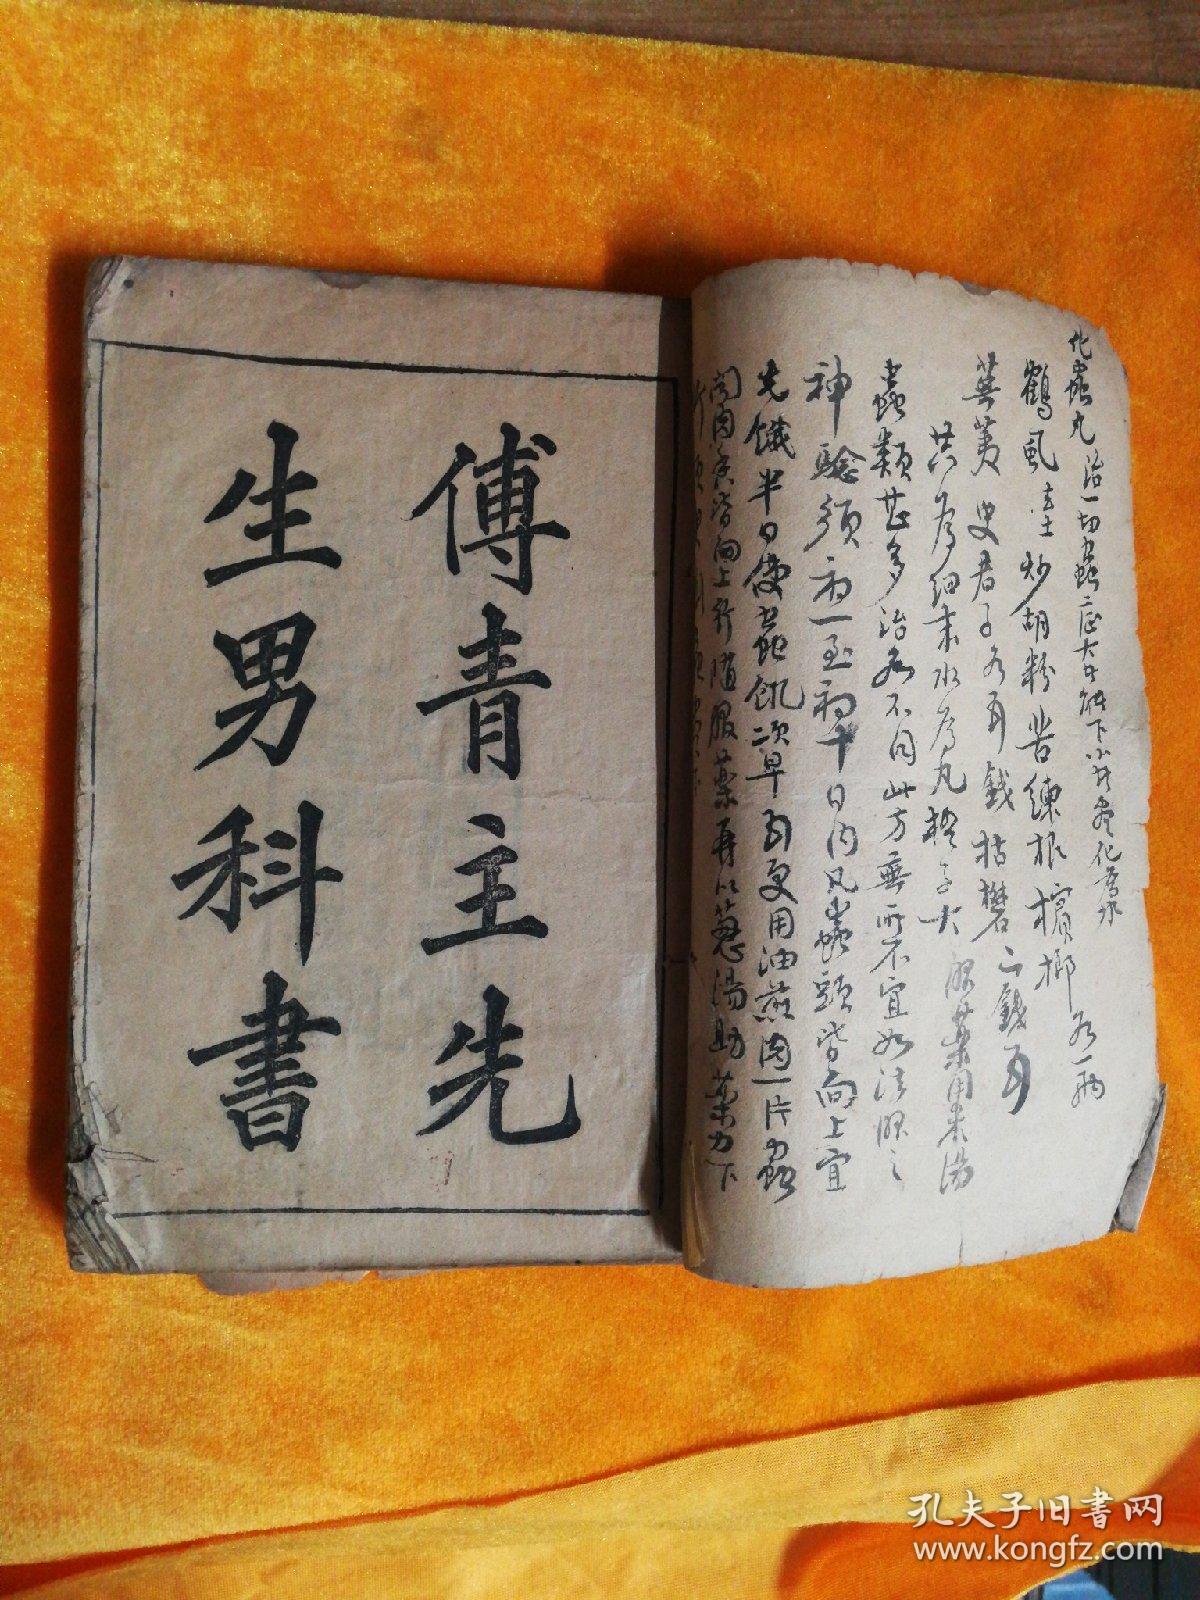 化蟲丸 治一切蟲症大者能下小者盡化為水
鶴虱 去土炒 胡粉 苦練根 檳榔 各一兩
蕪荑 史君子 各五錢 枯礬 二錢五
共為細末水為丸梧子大 服藥用米湯
蟲類甚多治各不同此方無所不宜如法服之
神驗須初一至初十日內凡蟲頭皆向上宜
先餓半日使蟲飢次早五更用油煎肉一片蟲
聞肉香皆向上行隨服藥再以葱湯助藥力下
傅青主先
生男科書
孔夫子旧书网
www.kongfz.com